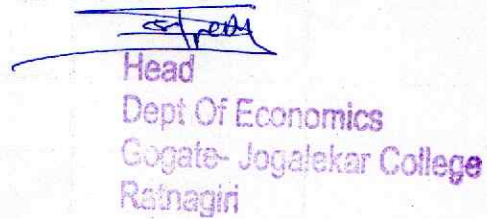 Head
Dept Of Economics
Gogate- Jogalekar College
Ratnagiri